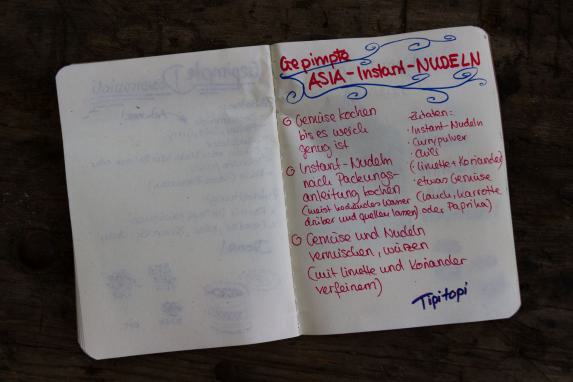 Gepimpte
ASIA-Instant-NUDELN
Gemüse kochen
bis es weich
genug ist
Instant-Nudeln
nach Packungs-
anleitung kochen
(meist kochendes Wasser
drüber und quellen lassen)
Gemüse und Nudeln
vermischen, würzen
(mit limette und Koriander
verfeinern)
Zutaten:
• Instant-Nudeln
• Currypulver
• Chili
• (limette + Koriander)
• etwas Gemüse
(Lauch, Karotte
oder Paprika)
Tipitopi